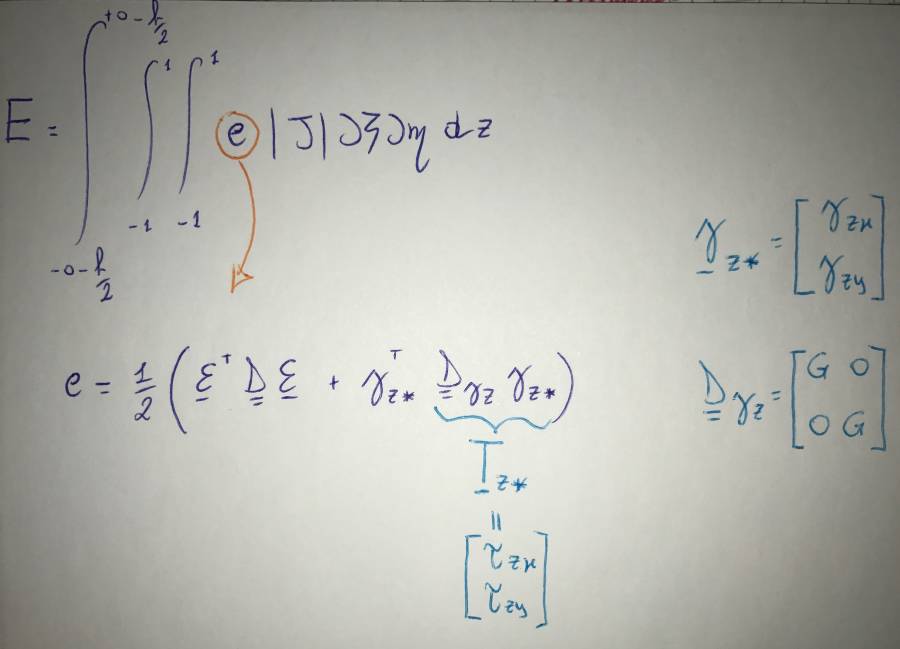 E = ∫_{-o-h/2}^{+o-h/2} ∫_{-1}^{1} ∫_{-1}^{1} e |J| ∂ξ ∂η dz
γ_{z*} = [γ_{zx} γ_{zy}]
e = 1/2 ( ε^T D ε + γ_{z*}^T D_{γz} γ_{z*} )
D_{γz} = [G 0
0 G]
τ_{z*}
=
[τ_{zx}
τ_{zy}]